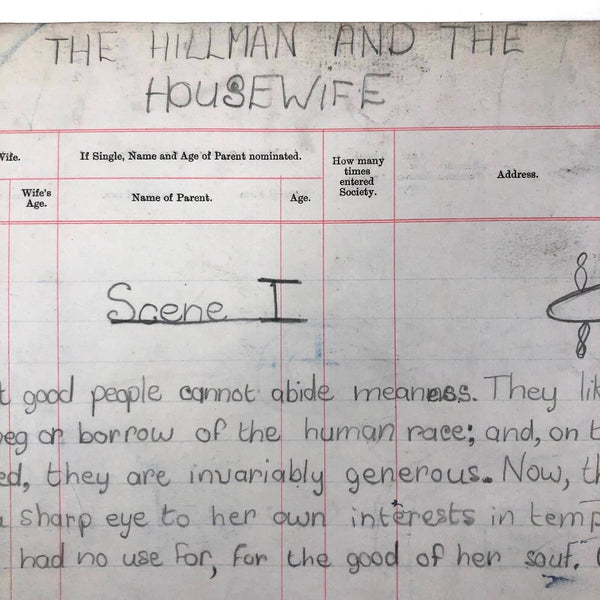 THE HILLMAN AND THE
HOUSEWIFE
Wife.
If Single, Name and Age of Parent nominated.
How many
times
entered
Society.
Address.
Wife's
Age.
Name of Parent.
Age.
Scene I
t good people cannot abide meanness. They lik
beg or borrow of the human race; and, on t
ed, they are invariably generous. Now, th
a sharp eye to her own interests in temp
had no use for, for the good of her soul.